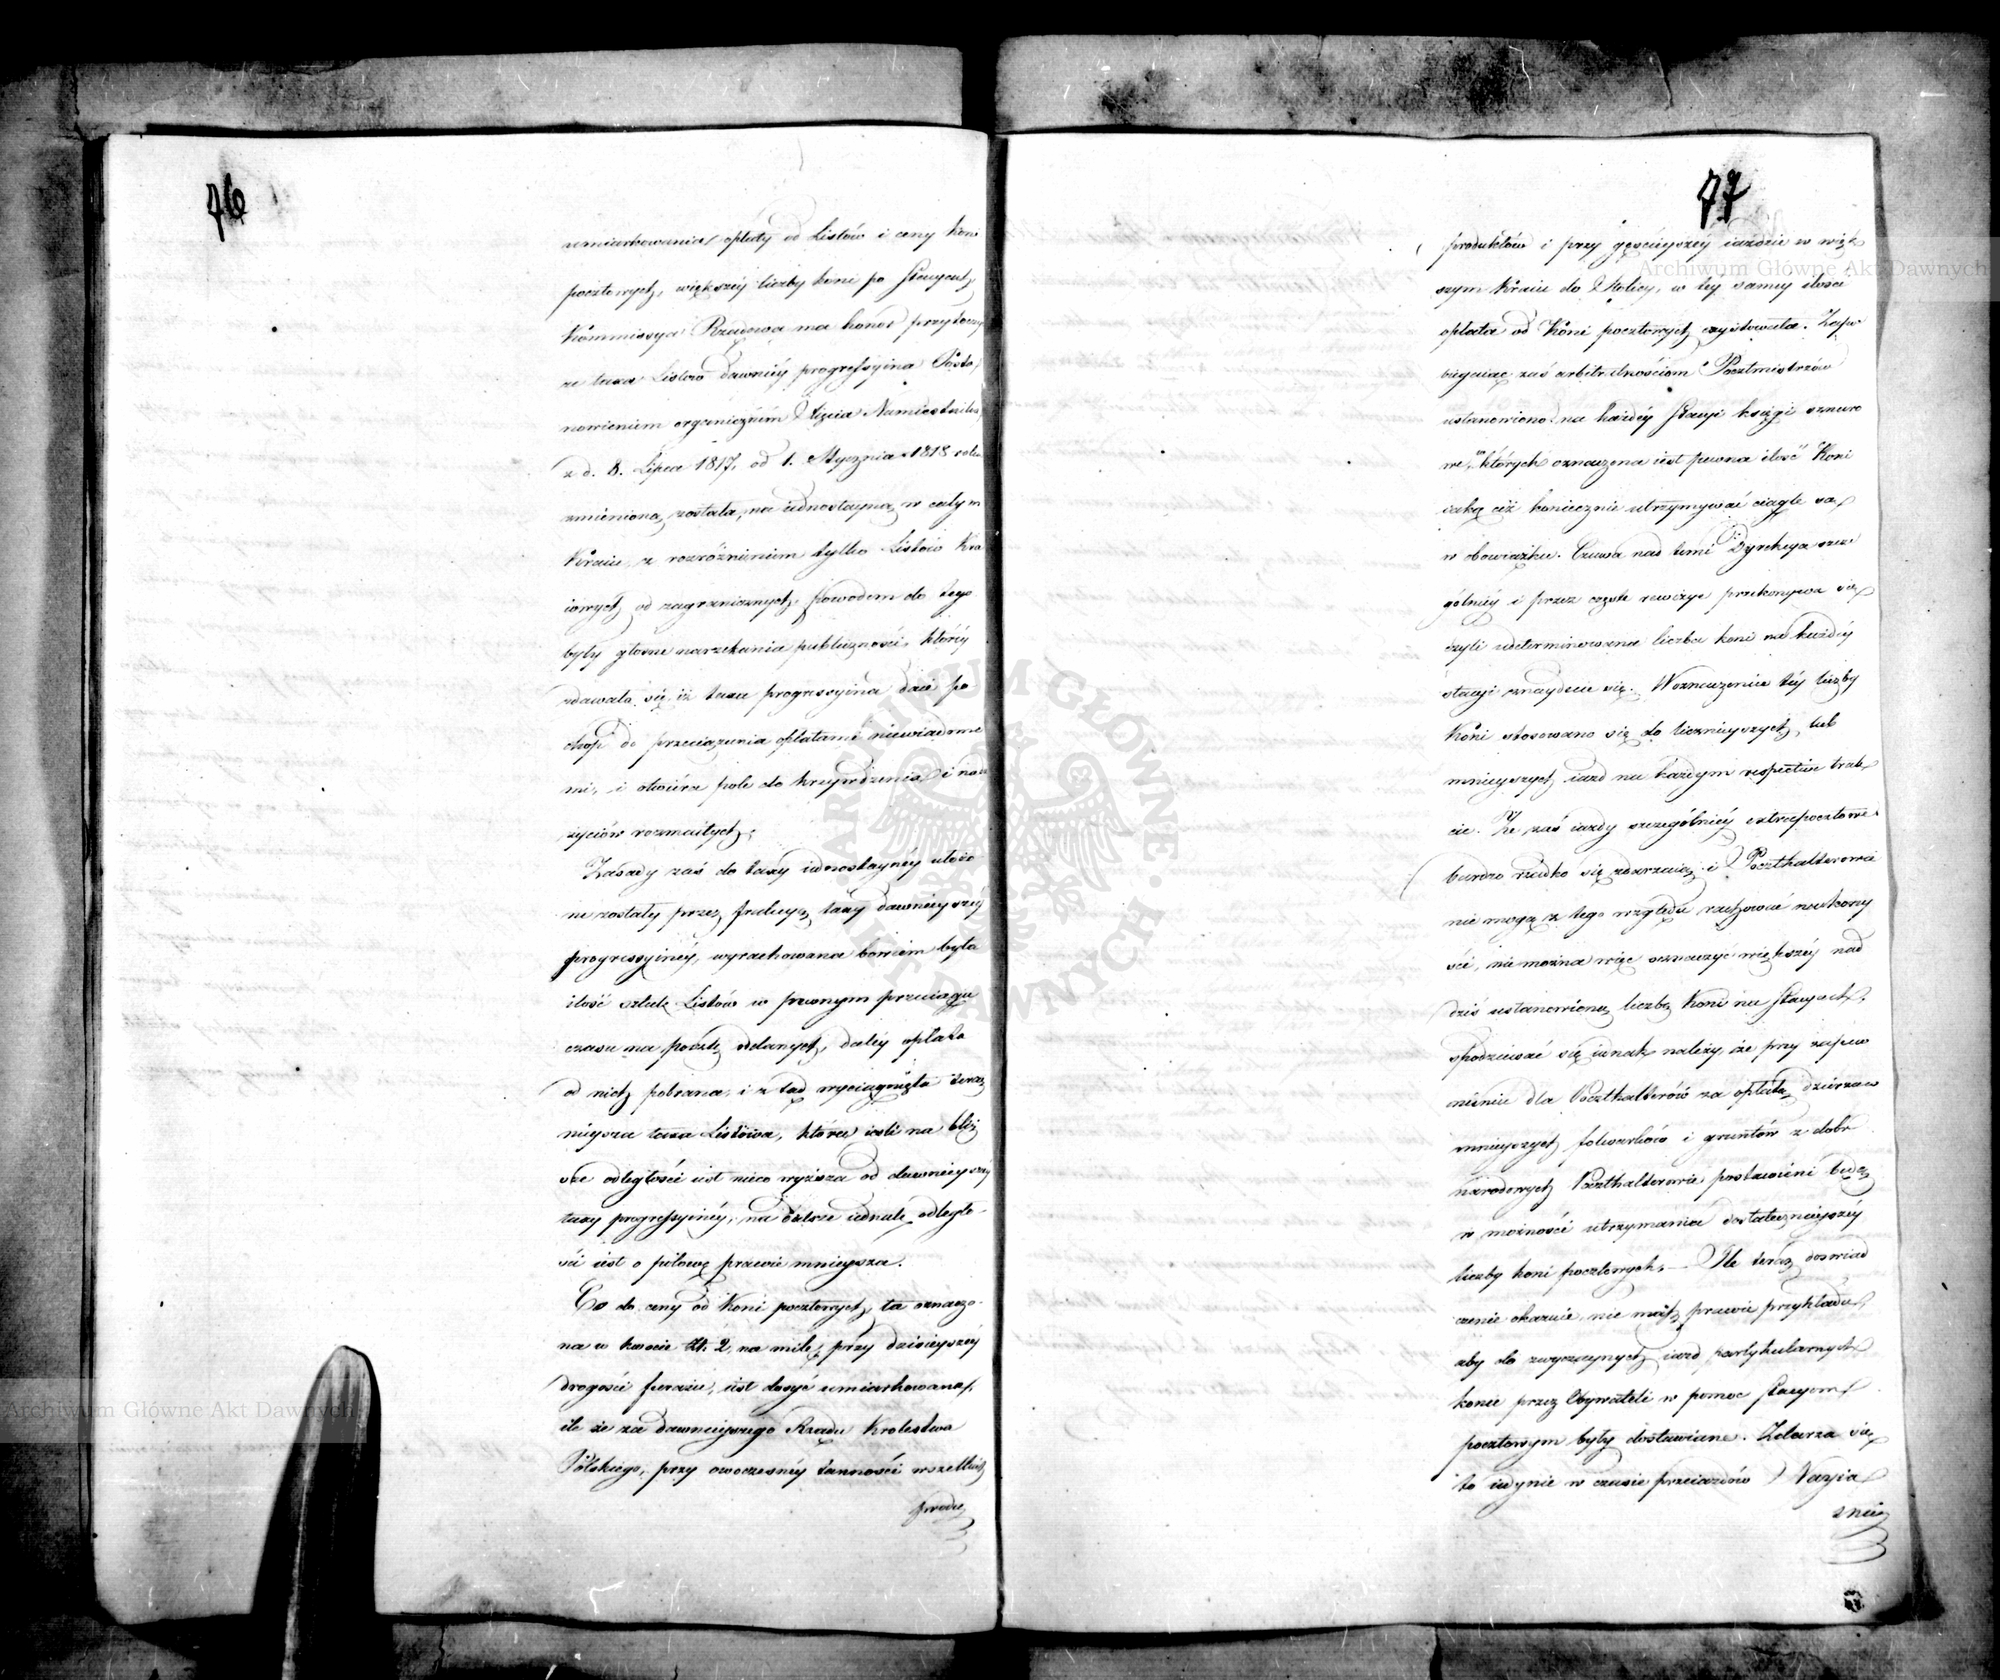 76
umiarkowania opłaty od Listów i ceny koni
pocztowych, większéy liczby koni po Stacyach,
Kommissya Rządowa ma honor przytoczyć
że taxa Listowa dawniéy progressyina Posta,
nowieniem organiczném Xięcia Namiestnika
z d. 8. Lipca 1817, od 1. Stycznia 1818 roku
zmienioną została, na iednostayną w całym
Kraiu, z rozróżnieniem tylko Listów Kra
iowych od zagranicznych, powodem do tego
były głośne narzekania publiczności, któréy
zdawało się iż taxa progressyina daie po
chop do przeciążenia opłatami niewiadome
mi, i otwiera pole do krzywdzenia i nad
życiów rozmaitych.
Zasady zaś do taxy iednostaynéy ułożo
ne zostały przez frakcyą taxy dawnieyszéy
progressyinéy, wyrachowana bowiem była
ilość sztuk Listów w pewnym przeciągu
czasu na pocztę oddanych, daléy opłata
od nich pobrana, i z tąd wyciągnięta teraz
nieysza taxa Listowa, która ieśli na bliż
sze odległości iest nieco wyższa od dawnieyszéy
taxy progressyinéy, na dalsze iednak odległo-
ści iest o połowę prawie mnieysza.
Co do ceny od Koni pocztowych, ta oznaczo-
na w kwocie zł. 2, na milę, przy dzisieyszéy
drogości furażu, iest dosyć umiarkowana,
ile że za dawnieyszego Rządu Królestwa
Polskiego, przy owoczesnéy tanności wszelkich
produ
77
produktów i przy gęścieyszéy ieździe w więk
szym Kraiu do Stolicy, w téy saméy ilości
opłata od Koni pocztowych exystowała. Zapo
biegaiąc zaś arbitralnościom Pocztmistrzów
ustanowiono na każdéy Stacyi księgi sznuro
we, w których oznaczona iest pewna ilość Koni
iaką ciż koniecznie utrzymywać ciągle są
w obowiązku. Czuwa nad temi Dyrekcya szcze
gólniéy i przez częste rewizye przekonywa się
czyli udeterminowana liczba koni na każdéy
stacyi znayduie się. W oznaczeniu téy liczby
Koni stosowano się do licznieyszych lub
mnieyszych iazd na każdym respective trak
cie. Że zaś iazdy szczególniéy extrapocztowe
bardzo rzadko się zdarzaią i Poczthalterowie
nie mogą z tego względu rachować na korzy
ści, nie można więc oznaczyć większéy nad
dziś ustanowioną liczbę Koni na Stacyach,
spodziewać się iednak należy, że przy zapew
nieniu dla Poczthalterów za opłatą dzierżaw
mnieyszych folwarków i gruntów z dóbr
narodowych Poczthalterowie postawieni będą
w możności utrzymania dostatecznieyszéy
liczby koni pocztowych. — Ile teraz doświad
czenie okazuie, nie masz prawie przykładu,
aby do zwyczaynych iazd partykularnych
konie przez Obywateli w pomoc Stacyom
pocztowym były dostawiane. Zdarza się
to iedynie w czasie przeiazdów Nayia
śniey